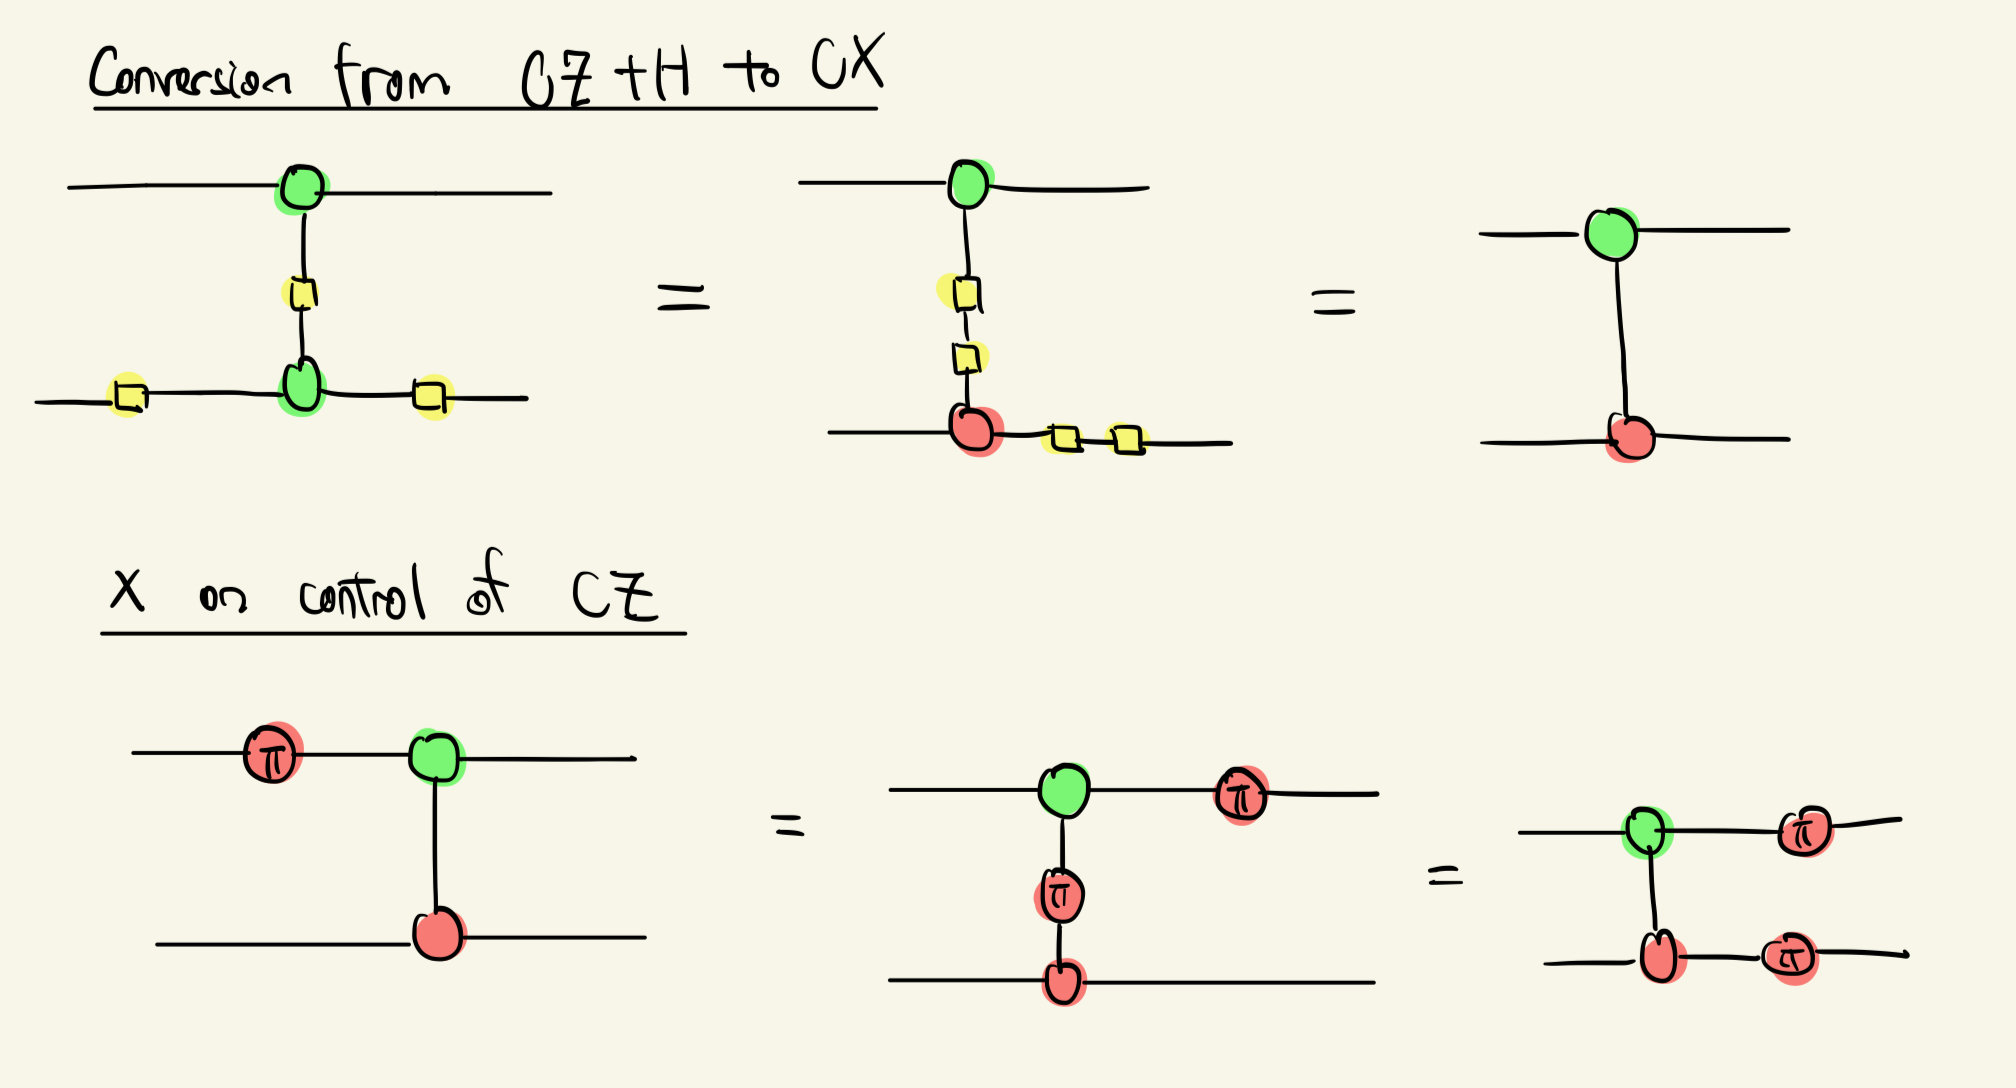 Conversion from CZ + H to CX
= =
X on control of CZ
π
= π π = π π